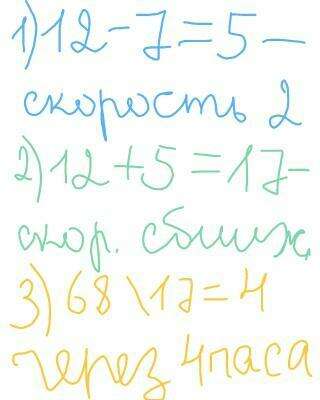 1) 12 - 7 = 5 —
скорость 2
2) 12 + 5 = 17 -
скор. сближ.
3) 68 \ 17 = 4
через 4 часа